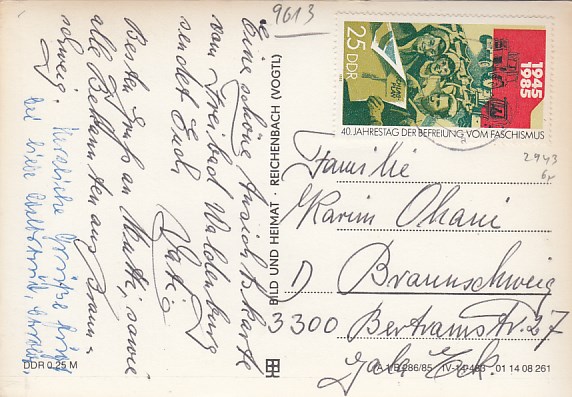 9613
Eine schöne Ansichtskarte
vom Freibad Waldenburg
sendet Euch
Kati
Beste Grüße an Mutti, sowie
alle Bekannten aus Braun=
schweig.
Herzliche Grüße
DDR 0,25 M
BILD UND HEIMAT · REICHENBACH (VOGTL)
25 DDR
1945
1985
40. JAHRESTAG DER BEFREIUNG VOM FASCHISMUS
2943
Familie
Karim Okani
D Braunschweig
3300 Bertramstr. 27
286/85 IV-14-483 01 14 08 261